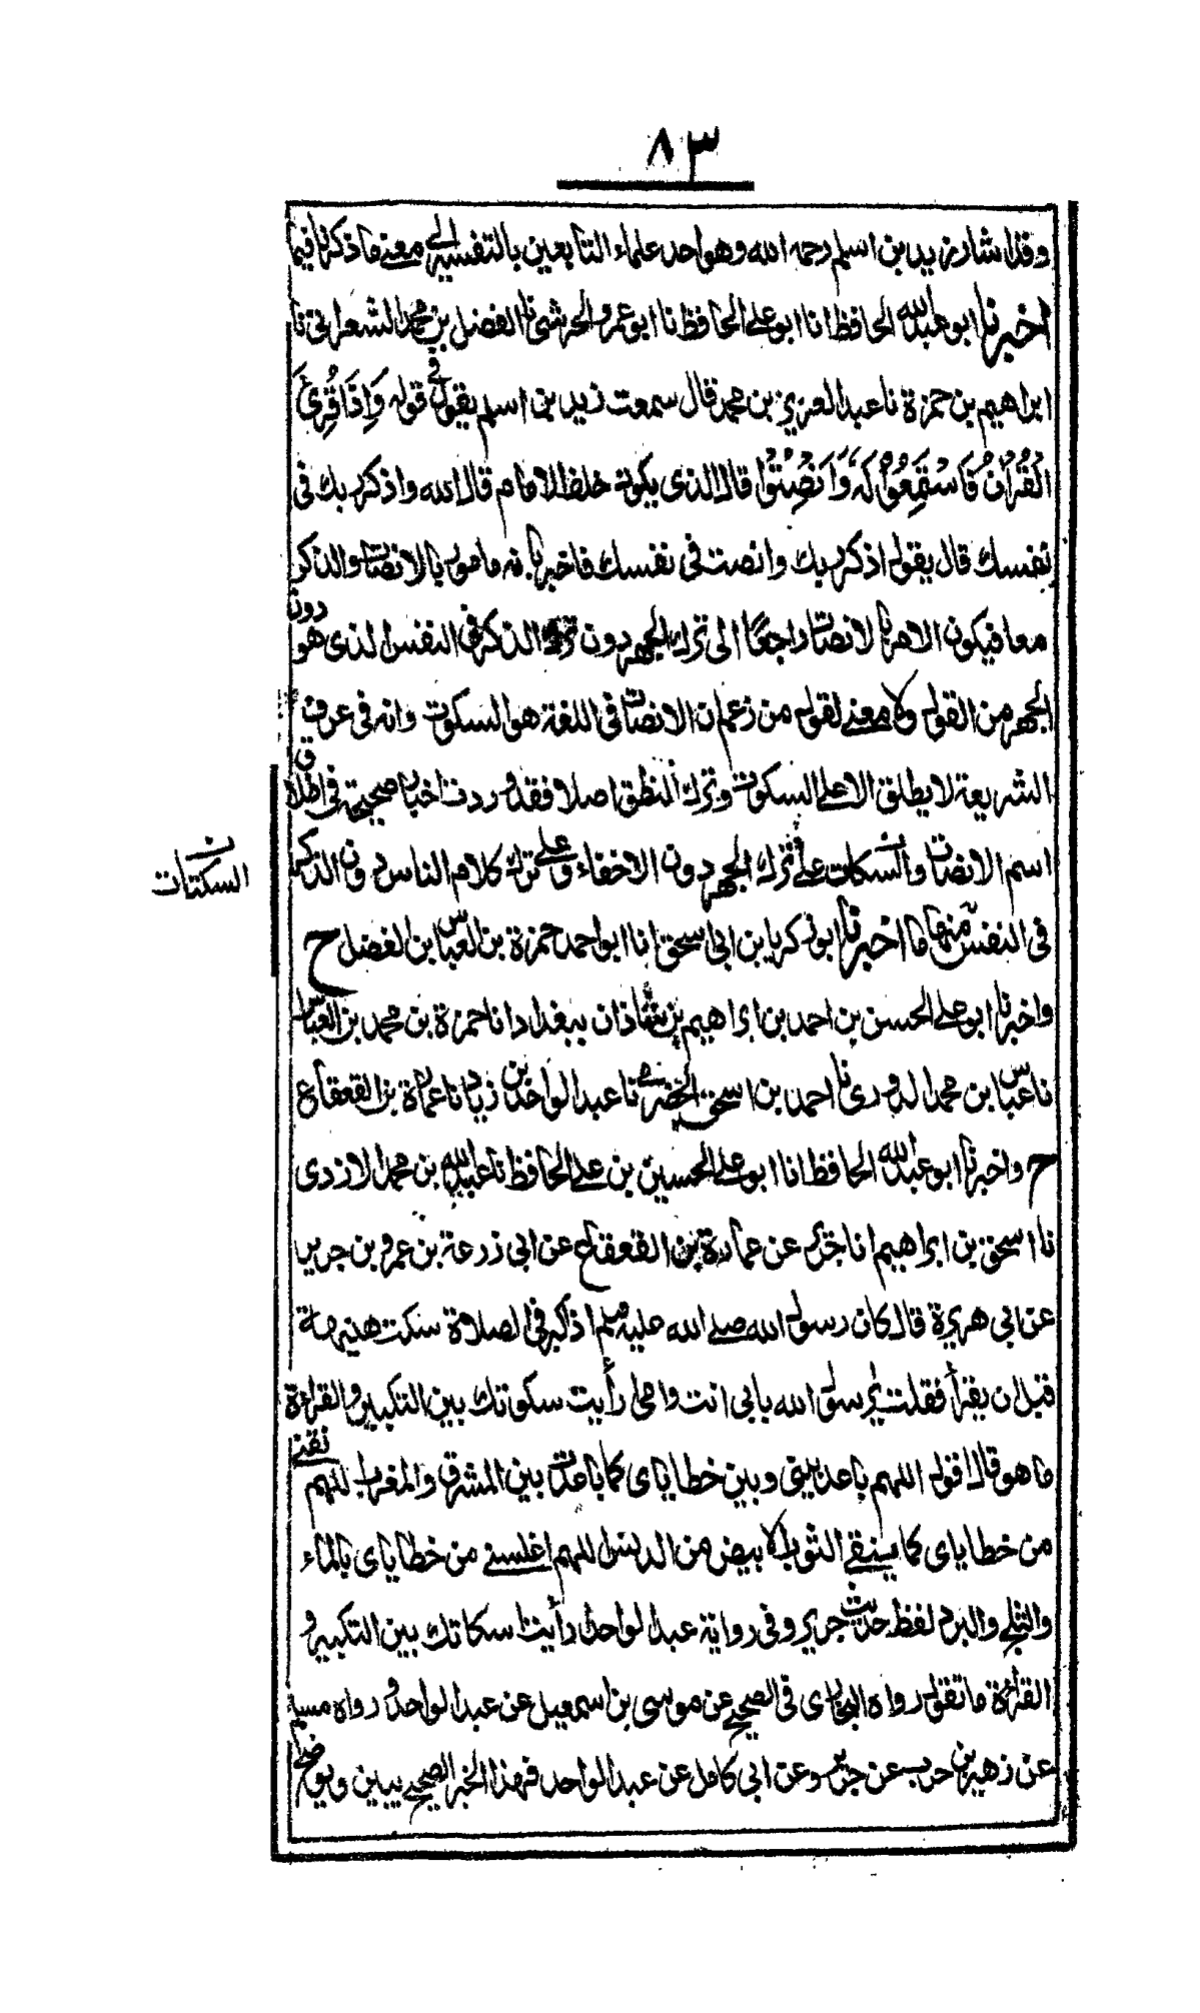 ٨٣
وقد اشار زيد بن اسلم رحمه الله وهو احد علماء التابعين بالتفسير الى معنى ما ذكرنا فيما
اخبرنا ابو عبد الله الحافظ انا ابو على الحافظ انا ابو عمرو الحرشى نا الفضل بن محمد الشعرانى نا
ابراهيم بن حمزة نا عبد العزيز بن محمد قال سمعت زيد بن اسلم يقول فى قوله وَاِذَا قُرِئَ
الْقُرْاٰنُ فَاسْتَمِعُوْا لَهٗ وَاَنْصِتُوْا قال الذى يكون خلف الامام قال الله واذكر ربك فى
نفسك قال يقول اذكر ربك وانصت فى نفسك فاخبر بانه مامور بالانصات والذكر
معا فيكون الامر بالانصات راجعًا الى ترك الجهر دون ترك الذكر فى النفس الذى هو دون
الجهر من القول ولا معنى لقول من زعم ان الانصات فى اللغة هو السكوت وانه فى عرف
الشريعة لا يطلق الا على السكوت وترك النطق اصلا فقد وردت اخبار صحيحة فى اطلاق
اسم الانصات والسكات على ترك الجهر دون الاخفاء وعلى ترك كلام الناس دون الذكر
ن
السكتات
فى النفس منها ما اخبرنا ابو زكريا بن ابى اسحق انا ابو احمد حمزة بن العباس ابن الفضل ح
واخبرنا ابو على الحسن بن احمد بن ابراهيم بن شاذان ببغداد انا حمزة بن محمد بن العباس
نا عباس ابن محمد الدورى نا احمد بن اسحق الحضرمى نا عبد الواحد بن زياد نا عمارة بن القعقاع
ح واخبرنا ابو عبد الله الحافظ انا ابو على الحسين بن على الحافظ نا عبد الله بن محمد الازدى
نا اسحق بن ابراهيم انا جرير عن عمارة بن القعقاع عن ابى زرعة بن عمرو بن جرير
عن ابى هريرة قال كان رسول الله صلى الله عليه وسلم اذا كبر فى الصلاة سكت هنيهة
قبل ان يقرأ فقلت يا رسول الله بابى انت وامى رأيت سكوتك بين التكبير والقراءة
ما هو قال اقول اللهم باعد بينى وبين خطاياى كما باعدت بين المشرق والمغرب اللهم نقنى
من خطاياى كما ينقى الثوب الابيض من الدنس اللهم اغسلنى من خطاياى بالماء
والثلج والبرد لفظ حديث جرير وفى رواية عبد الواحد رأيت اسكاتك بين التكبير و
القراءة ما تقول رواه البخارى فى الصحيح عن موسى بن اسمعيل عن عبد الواحد ورواه مسلم
عن زهير بن حرب عن جرير وعن ابى كامل عن عبد الواحد فهذا الخبر الصحيح يبين ويوضح